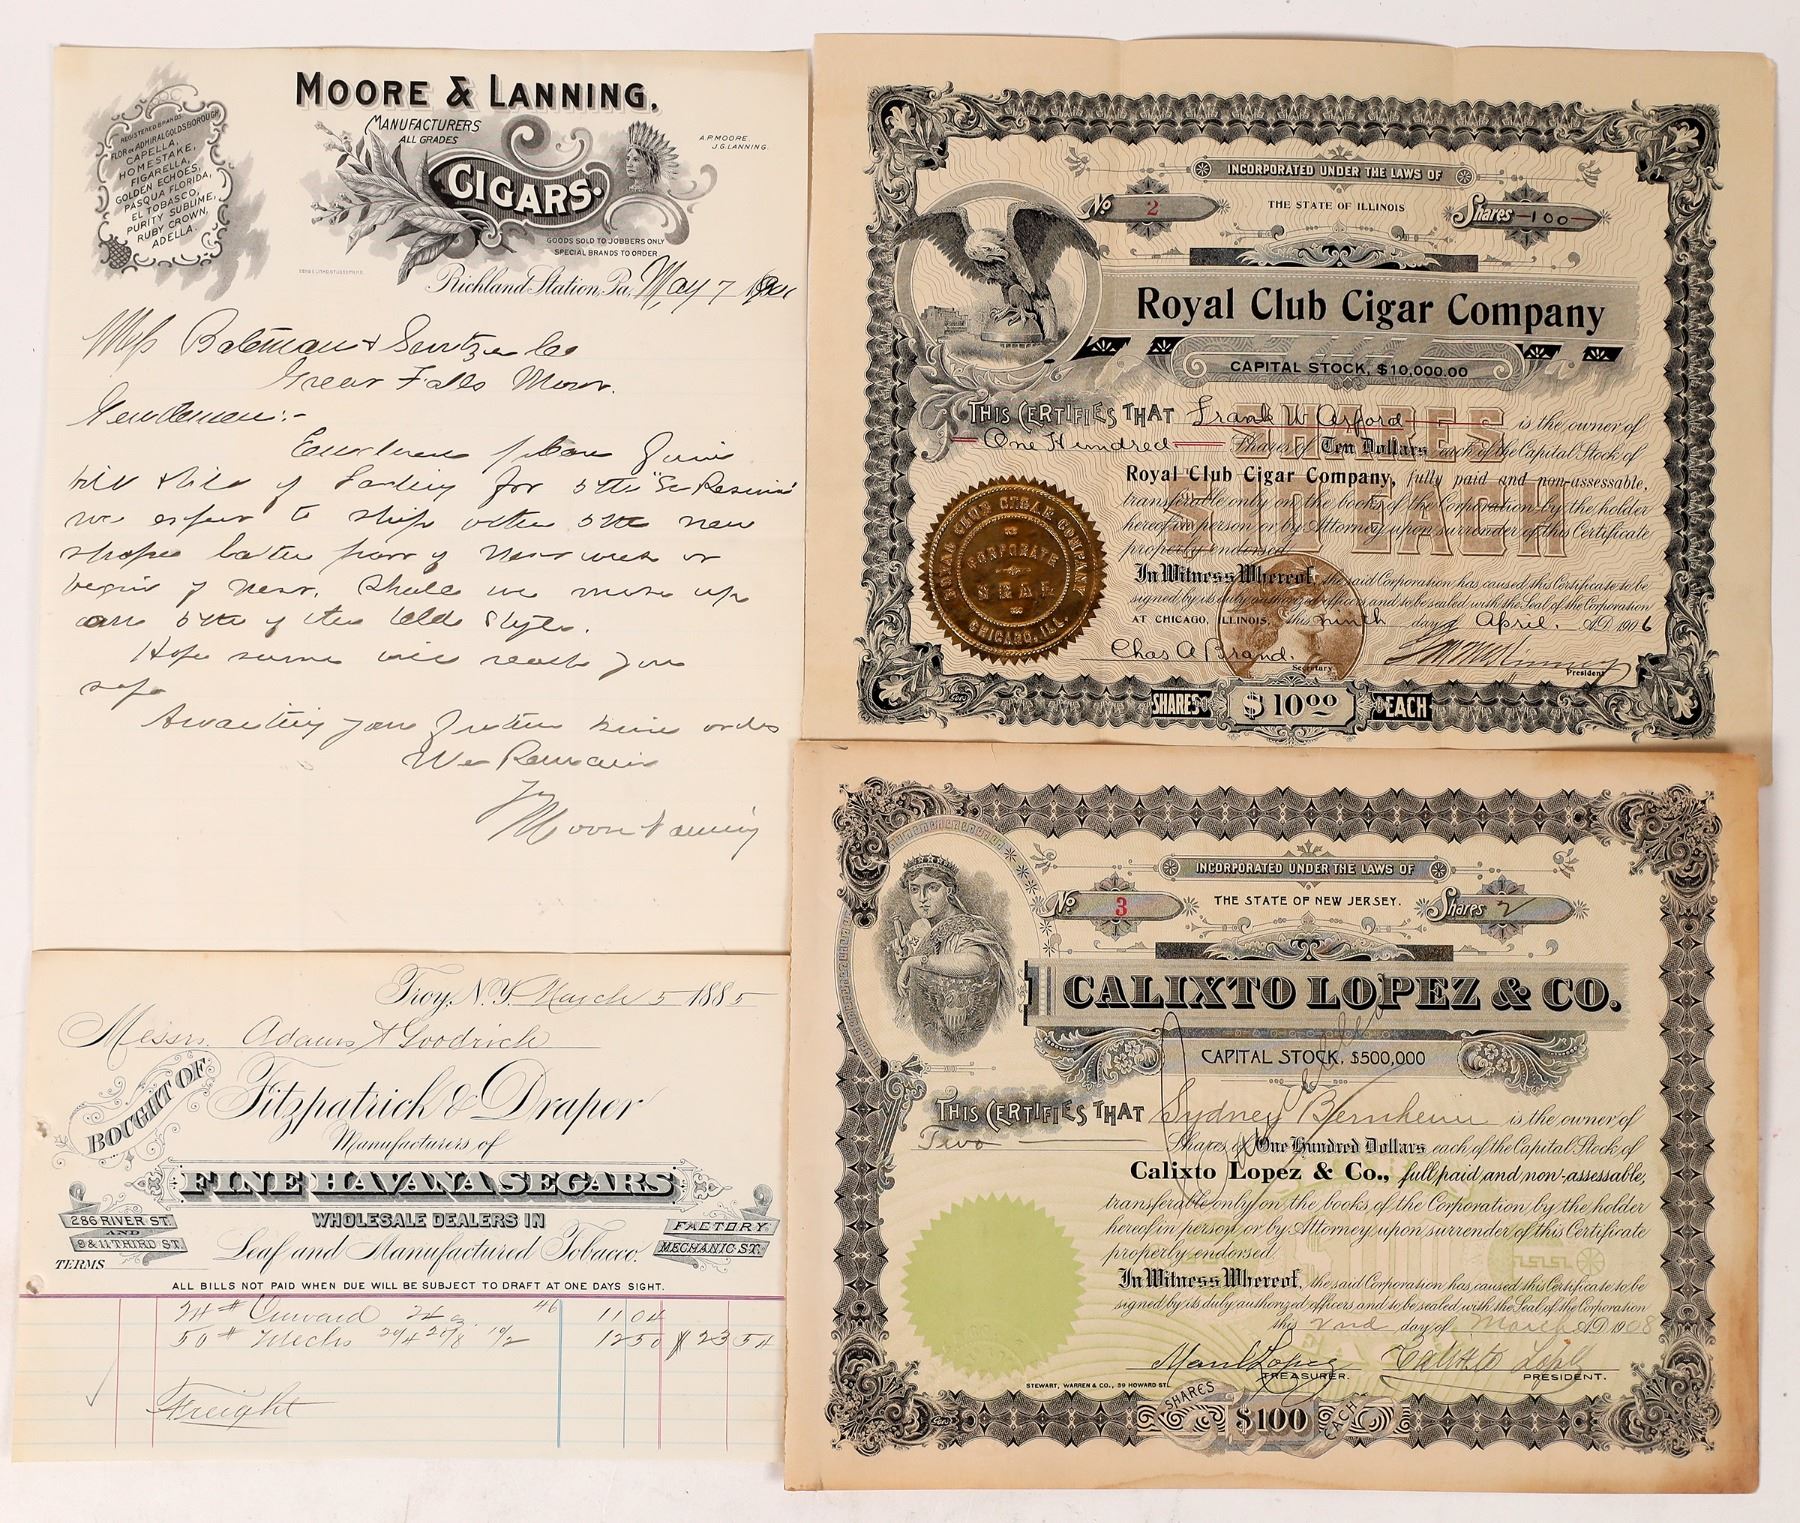 MOORE & LANNING.
MANUFACTURERS
ALL GRADES
CIGARS.
A.P. MOORE.
J.G. LANNING.
REGISTERED BRANDS
FLOR DE ADMIRAL GOLDSBOROUGH
CAPELLA,
HOMESTAKE,
FIGARELLA,
GOLDEN ECHOES,
PASQUA FLORIDA,
EL TOBASCO,
PURITY SUBLIME,
RUBY CROWN,
ADELLA.
GOODS SOLD TO JOBBERS ONLY
SPECIAL BRANDS TO ORDER
Richland Station, Pa. May 7
Bateman & Co
Great Falls Mon.
Gentlemen:-
Enclosed please find
bill & bill of Lading for 5
we expect to ship other 5 new
shapes latter part of week or
begin of next. Shall we make up
of the old Style.
Hope same will reach you
safe
Awaiting your further kind orders
We Remain
Moore & Lanning
INCORPORATED UNDER THE LAWS OF
No 2
THE STATE OF ILLINOIS
Shares -100-
Royal Club Cigar Company
CAPITAL STOCK, $10,000.00
THIS CERTIFIES THAT Frank W Arford is the owner of
One Hundred Shares of Ten Dollars each of the Capital Stock of
Royal Club Cigar Company, fully paid and non-assessable,
transferable only on the books of the Corporation by the holder
hereof in person or by Attorney upon surrender of this Certificate
properly endorsed.
In Witness Whereof, the said Corporation has caused this Certificate to be
signed by its duly authorized officers and to be sealed with the Seal of the Corporation
AT CHICAGO, ILLINOIS, this ninth day of April. A.D. 1906
Chas A Brand.
Secretary
President
ROYAL CLUB CIGAR COMPANY
CORPORATE
SEAL
CHICAGO, ILL.
SHARES $10.00 EACH
Troy, N.Y. March 5 1885
Messrs. Adams & Goodrich
BOUGHT OF
Fitzpatrick & Draper
Manufacturers of
FINE HAVANA SEGARS
WHOLESALE DEALERS IN
286 RIVER ST.
AND
9 & 11 THIRD ST.
FACTORY
MECHANIC ST.
Leaf and Manufactured Tobacco.
TERMS
ALL BILLS NOT PAID WHEN DUE WILL BE SUBJECT TO DRAFT AT ONE DAYS SIGHT.
24 # 46 11 04
50 # Mechs 12 50 $ 23 54
Freight
INCORPORATED UNDER THE LAWS OF
No 3
THE STATE OF NEW JERSEY.
Shares 2
CALIXTO LOPEZ & CO.
CAPITAL STOCK, $500,000
THIS CERTIFIES THAT Sydney Bernheim is the owner of
Two Shares of One Hundred Dollars each of the Capital Stock of
Calixto Lopez & Co., full paid and non-assessable,
transferable only on the books of the Corporation by the holder
hereof in person or by Attorney upon surrender of this Certificate
properly endorsed.
In Witness Whereof, the said Corporation has caused this Certificate to be
signed by its duly authorized officers and to be sealed with the Seal of the Corporation
this 2nd day of March A.D. 1908
Manl Lopez
TREASURER.
Calixto Lopez
PRESIDENT.
STEWART, WARREN & CO., 39 HOWARD ST.
SHARES $100 EACH